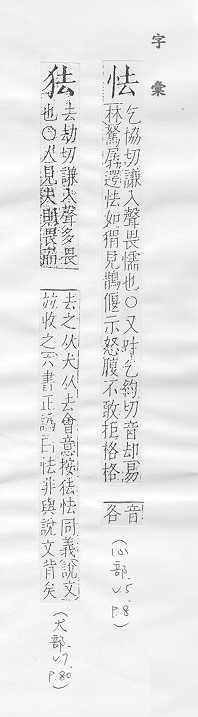 字彙
怯 乞協切謙入聲畏懦也○又叶乞約切音却易
林駑孱還怯如猬見鵲偃示怒腹不敢拒格格
音
各
(心部.v.5.p.8)
㹤 去劫切謙入聲多畏
也○犬見
則畏
去之从犬从去會意按㹤怯同義說文
竝收之六書正譌曰怯非與說文背矣
(犬部.v.7.p.80)